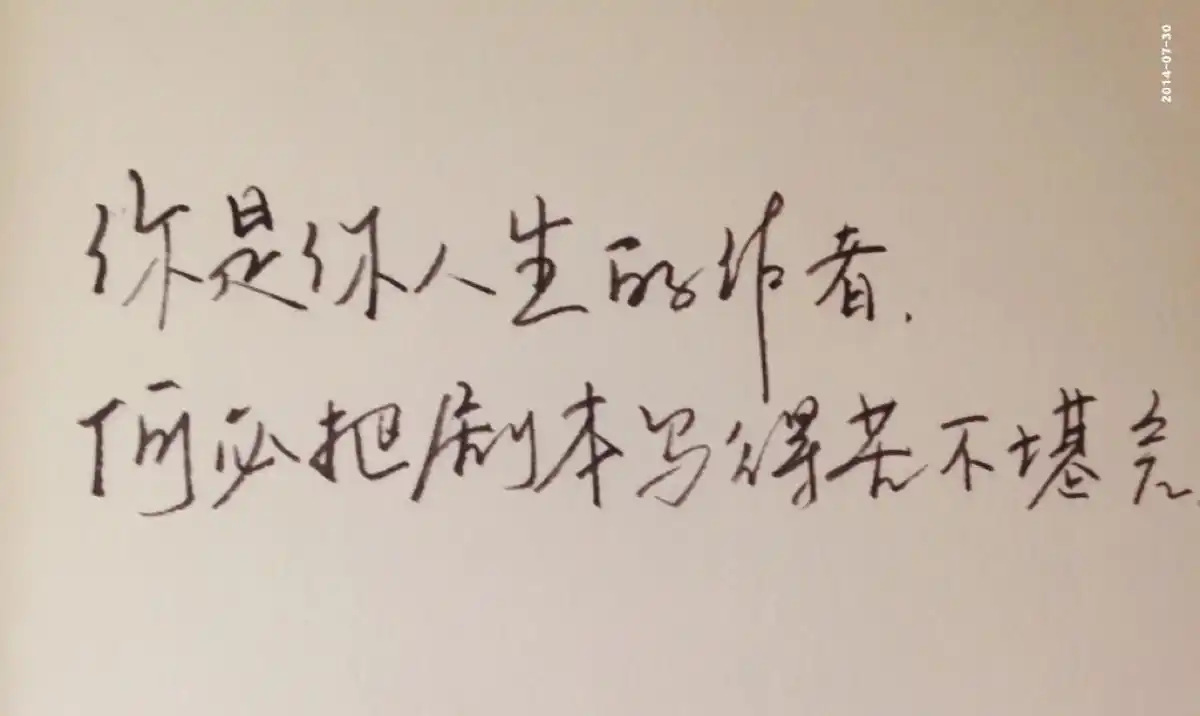 你是你人生的作者.
何必把剧本写得苦不堪言.
2014-07-30